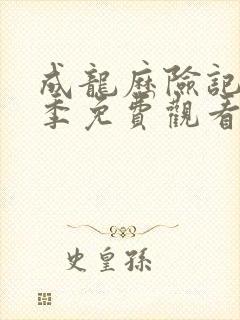 成龍歷險記
季免費觀看
史皇孫